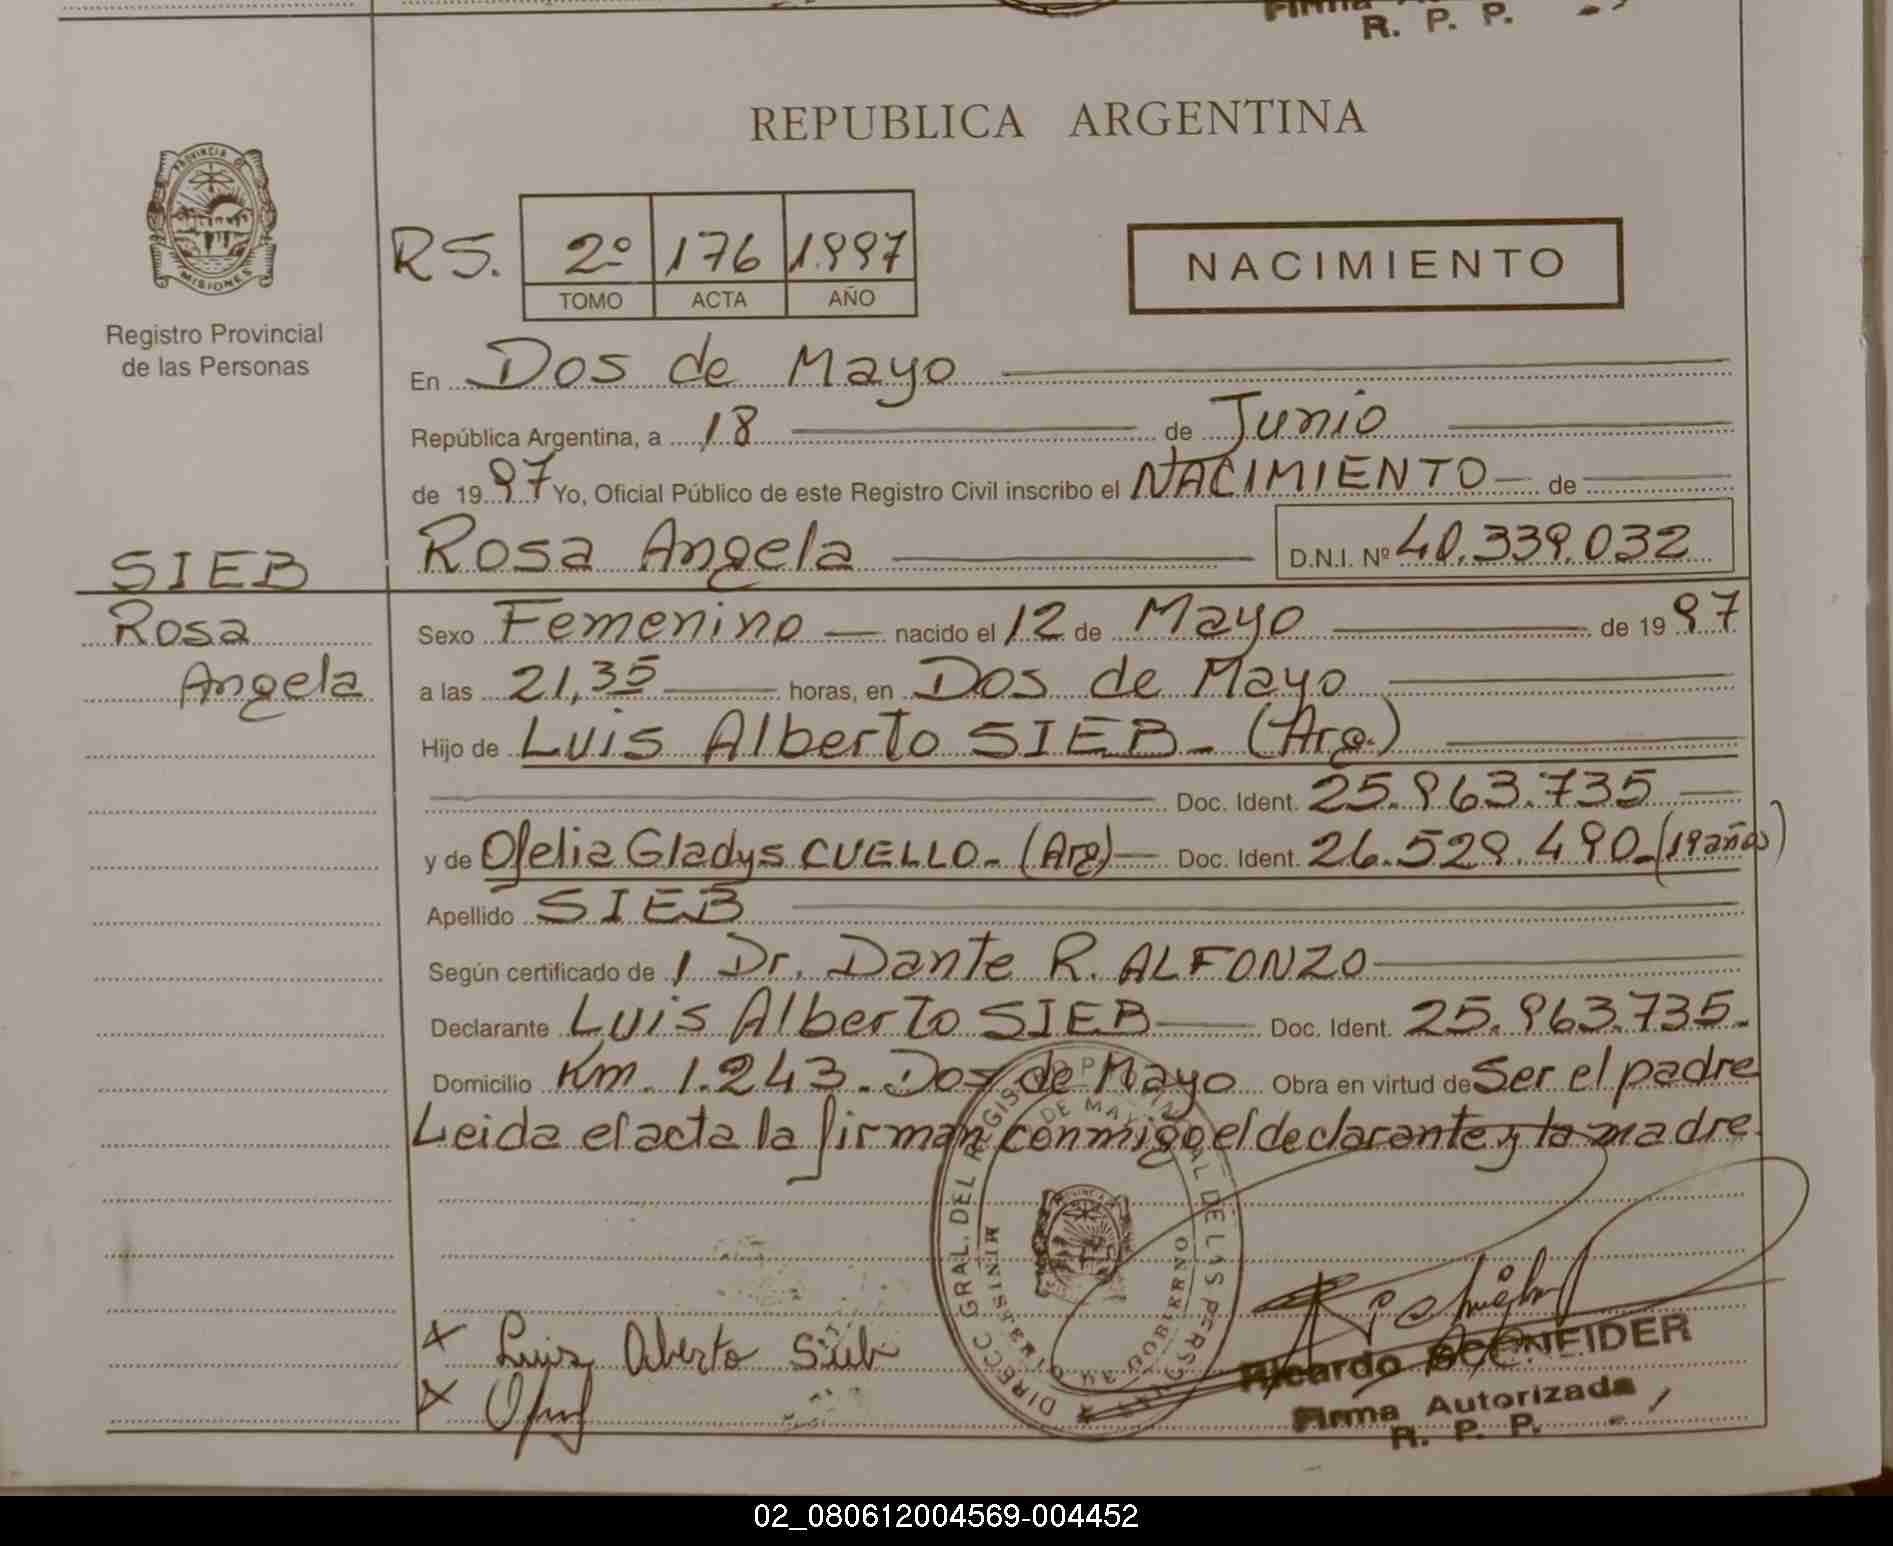 Firma
R. P. P.
REPUBLICA ARGENTINA
PROVINCIA DE
MISIONES
Registro Provincial
de las Personas
RS. 2º 176 1.997
TOMO ACTA AÑO
NACIMIENTO
En Dos de Mayo
República Argentina, a 18 de Junio
de 1997 Yo, Oficial Público de este Registro Civil inscribo el NACIMIENTO de
SIEB
Rosa Angela D.N.I. Nº 40.339.032
Rosa
Angela
Sexo Femenino nacido el 12 de Mayo de 1997
a las 21,35 horas, en Dos de Mayo
Hijo de Luis Alberto SIEB- (Arg.)
Doc. Ident. 25.963.735
y de Ofelia Gladys CUELLO- (Arg) Doc. Ident. 26.529.490-(19 años)
Apellido SIEB
Según certificado de 1 Dr. Dante R. ALFONZO
Declarante Luis Alberto SIEB Doc. Ident. 25.963.735.
Domicilio Km. 1.243. Dos de Mayo Obra en virtud de Ser el padre
Leida el acta la firman conmigo el declarante y la madre.
DIRECC GRAL. DEL REGISTRO PROVINCIAL DE LAS PERSONAS
DE MAYO
MINISTERIO DE GOBIERNO
x Luis Alberto Sieb
x
Ricardo SCHNEIDER
Firma Autorizada
R. P. P.
02_080612004569-004452